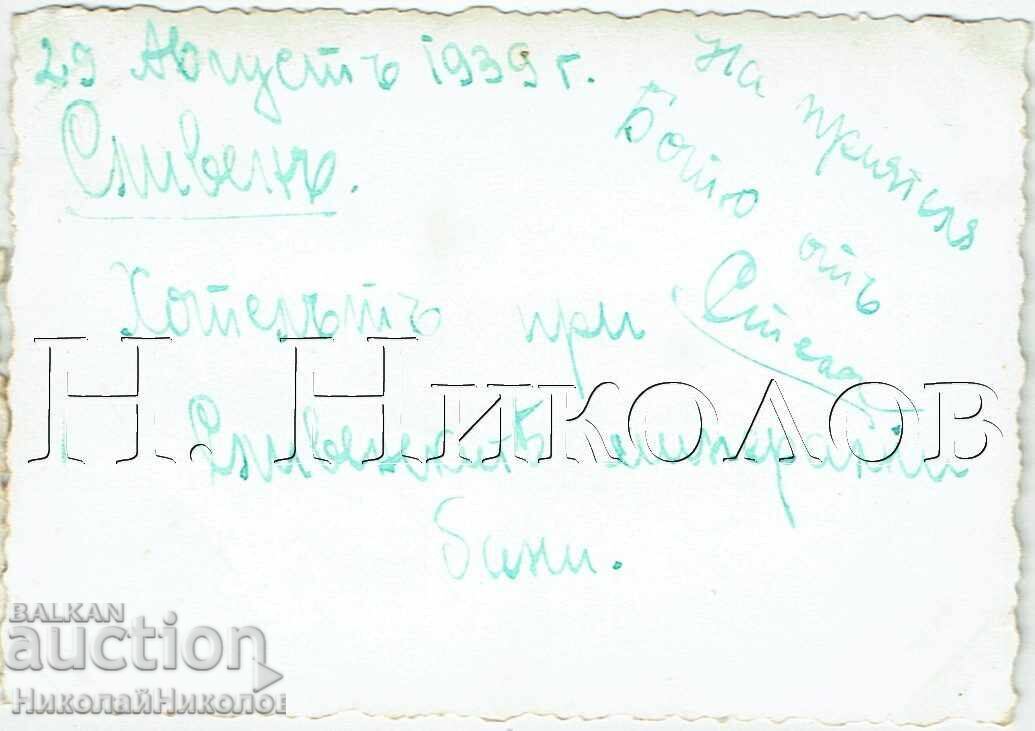 29 Августъ 1939 г.
Сливенъ.
На приятеля
Ботю отъ
Стела
Хотелътъ при
Сливенскитѣ минерални
бани.
Н. Николов
BALKAN
auction
НиколайНиколов